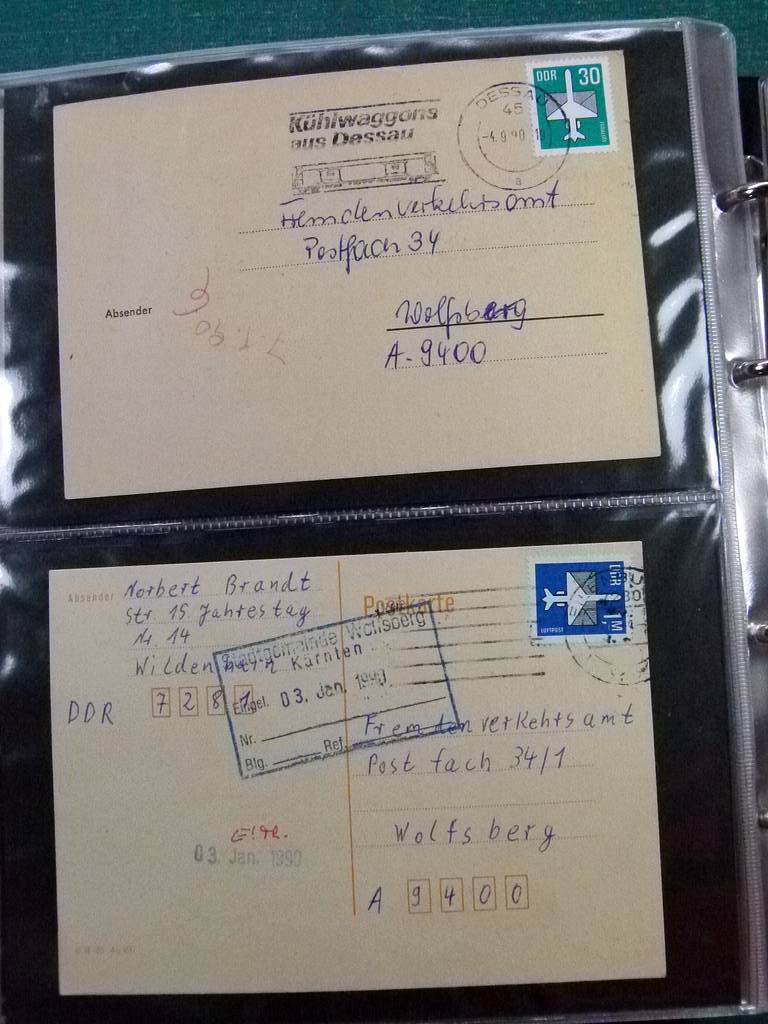 DDR 30
DESSAU
45
-4.9.90
a
Kühlwaggons
aus Dessau
Fremdenverkehrsamt
Postfach 34
Absender
Wolfsberg
A-9400
7.1.90
Absender
Norbert Brandt
Str. 15 Jahrestag
Nr. 14
Wildenhain
DDR 7281
Postkarte
DDR 1,M
LUFTPOST
Stadtgemeinde Wolfsberg
Kärnten
Eingel. 03. Jan. 1990
Nr.
Blg. Ref.
Fremdenverkehrsamt
Postfach 34/1
Wolfsberg
A 9400
03. Jan. 1990